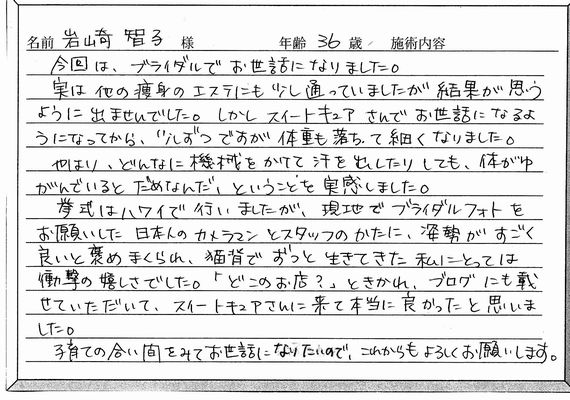 名前 岩崎 智子 様 年齢 36 歳 施術内容
今回は、ブライダルでお世話になりました。
実は他の痩身のエステにも少し通っていましたが結果が思う
ように出ませんでした。しかしスイートキュアさんでお世話になるよ
うになってから、少しずつですが体重も落ちて細くなりました。
やはり、どんなに機械をかけて汗を出したりしても、体がゆ
がんでいるとだめなんだ、ということを実感しました。
挙式はハワイで行いましたが、現地でブライダルフォトを
お願いした日本人のカメラマンとスタッフのかたに、姿勢がすごく
良いと褒めまくられ、猫背でずっと生きてきた私にとっては
衝撃の嬉しさでした。「どこのお店?」ときかれ、ブログにも載
せていただいて、スイートキュアさんに来て本当に良かったと思いま
した。
子育ての合い間をみてお世話になりたいので、これからもよろしくお願いします。